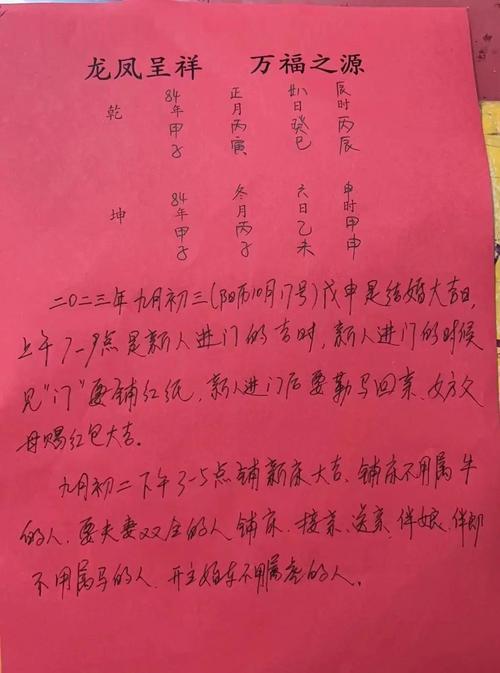 龙凤呈祥　万福之源
乾　84年甲子　正月丙寅　廿八日癸巳　辰时丙辰
坤　84年甲子　冬月丙子　六日乙未　申时甲申
二〇二三年九月初三(阳历10月17号)戊申是结婚大吉日,
上午7-9点是新人进门的吉时，新人进门的时候
见"门"要铺红纸，新人进门后要勒马回亲、女方父
母赐红包大吉。
九月初二下午3-5点铺新床大吉、铺床不用属牛
的人、要夫妻双全的人铺床、接亲、送亲、伴娘、伴郎
不用属马的人、开主婚车不用属虎的人。